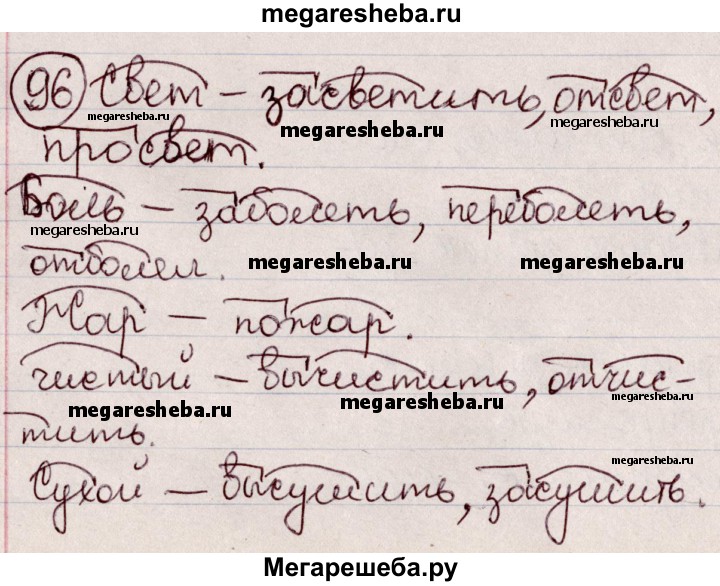 megaresheba.ru
96 Свет – засветить, отсвет,
megaresheba.ru megaresheba.ru megaresheba.ru
просвет.
Боль – заболеть, переболеть,
megaresheba.ru
отболел. megaresheba.ru megaresheba.ru
Жар – пожар.
чистый – вычистить, отчис-
megaresheba.ru megaresheba.ru megaresheba.ru
тить.
megaresheba.ru
Сухой – высушить, засушить.
Мегарешеба.ру